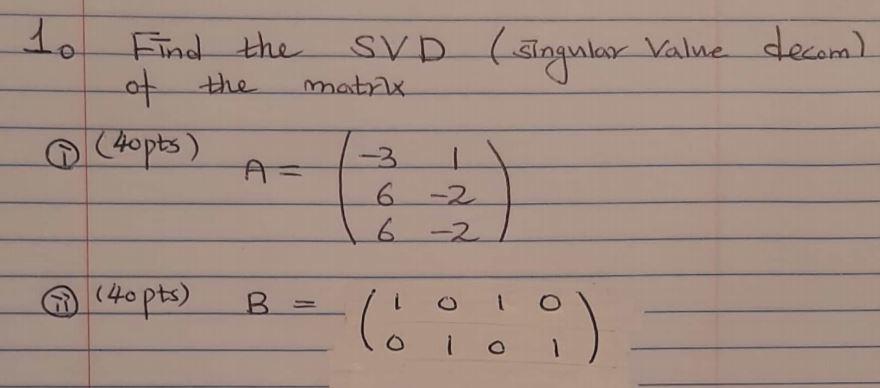 1. Find the SVD (singular Value decom)
of the matrix
(i) (40pts) A = ( -3 1
6 -2
6 -2 )
(ii) (40pts) B = ( 1 0 1 0
0 1 0 1 )